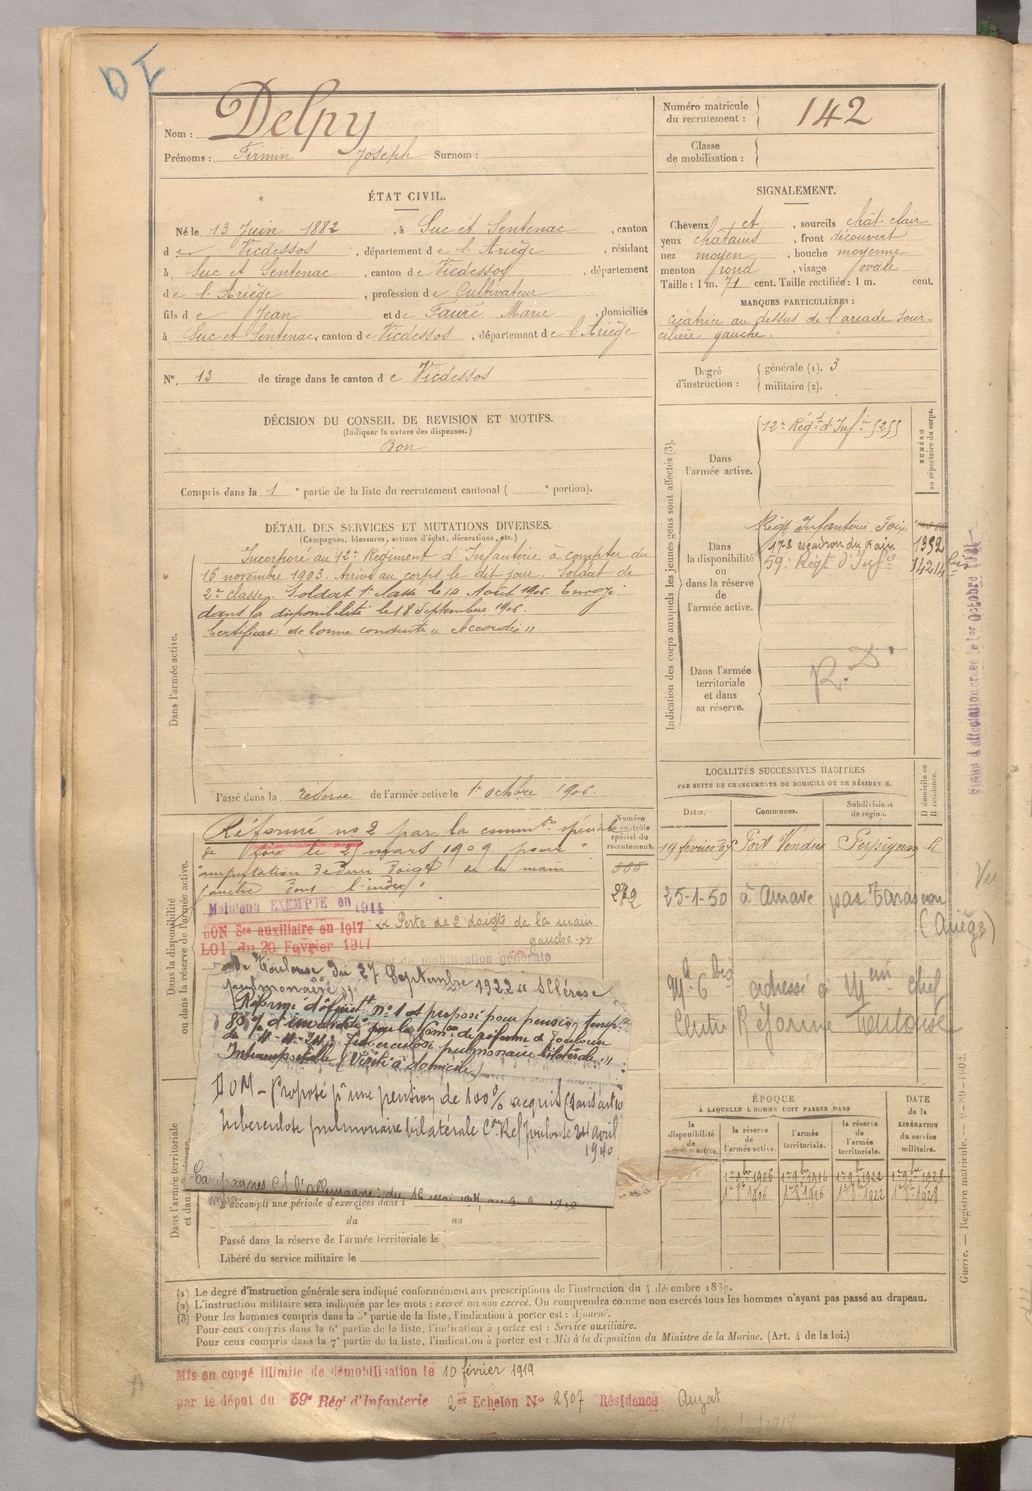 DI
Nom : Delpy
Prénoms : Firmin Joseph Surnom :
Numéro matricule du recrutement : 142
Classe de mobilisation :
ÉTAT CIVIL.
Né le 13 Juin 1882, à Suc et Sentenac, canton
d e Vicdessos, département d e l'Ariège, résidant
à Suc et Sentenac, canton d e Vicdessos, département
d e l'Ariège, profession d e Cultivateur
fils d e Jean et de Fauré Marie, domiciliés
à Suc et Sentenac, canton d e Vicdessos, département d e l'Ariège
N° 13 de tirage dans le canton d e Vicdessos
SIGNALEMENT.
Cheveux et, sourcils chat clair
yeux chatains, front découvert
nez moyen, bouche moyenne
menton rond, visage ovale
Taille : 1 m. 71 cent. Taille rectifiée : 1 m. cent.
MARQUES PARTICULIÈRES :
cicatrice au dessus de l'arcade sour-
cilière gauche.
Degré d'instruction : générale (1). 3
militaire (2).
DÉCISION DU CONSEIL DE REVISION ET MOTIFS.
(Indiquer la nature des dispenses.)
Bon
Compris dans la 1e partie de la liste du recrutement cantonal ( e portion).
DÉTAIL DES SERVICES ET MUTATIONS DIVERSES.
(Campagnes, blessures, actions d'éclat, décorations, etc.)
Dans l'armée active.
Incorporé au 12e Régiment d'Infanterie à compter du
16 novembre 1903. Arrivé au corps le dit jour. Soldat de
2e classe. Soldat 1e classe le 14 Août 1906. Envoyé
dans la disponibilité le 18 Septembre 1906.
Certificat de bonne conduite "Accordé".
Passé dans la réserve de l'armée active le 1er octobre 1906.
Indication des corps auxquels les jeunes gens sont affectés (3).
NUMÉRO au répertoire du corps.
Dans l'armée active.
12e Régt d'Infie 5255
Dans la disponibilité ou dans la réserve de l'armée active.
Régt Infanterie Foix
17e escadron du train 1332
59e Régt d'Infie 14214 bis
Dans l'armée territoriale et dans sa réserve.
R.D.
1er Octobre
Dans la disponibilité ou dans la réserve de l'armée active.
Numéro au contrôle spécial du recrutement.
272
Réformé no 2 par la common spéciale
de Foix le 25 mars 1909 pour
"amputation de deux doigts de la main
gauche dont l'index"
Maintenu EXEMPTÉ en 1914
BON Sce auxiliaire en 1917
LOI du 20 Février 1917
"Perte de 2 doigts de la main
gauche"
de mobilisation générale
de Toulouse du 27 Septembre 1922 "Sclérose
pulmonaire"
Réformé définitt n° 1 et proposé pour pension temp.re
Tuberculose pulmonaire bilatérale"
Intransportable (Visité à domicile)
Proposé pr une pension de 100%
tuberculose pulmonaire bilatérale Con Ref Toulouse 24 avril
1940
Campagnes Ct l'allemagne : du 16 mai
LOCALITÉS SUCCESSIVES HABITÉES
PAR SUITE DE CHANGEMENTS DE DOMICILE OU DE RÉSIDENCE.
Dates. Communes. Subdivisions de région. D domicile ou R résidence.
19 février 07 Port Vendres Perpignan R
25-1-50 à Amave par Tarascon
(Ariège)
adressé à Mr chef
Centre Réforme Toulouse
ÉPOQUE
À LAQUELLE L'HOMME DOIT PASSER DANS
la disponibilité de l'armée active. la réserve de l'armée active. l'armée territoriale. la réserve de l'armée territoriale.
DATE de la LIBÉRATION du service militaire.
1er 9bre 1906 1er 9bre 1916 1er 9bre 1922 1er 9bre 1928
1er 8bre 1906 1er 8bre 1916 1er 8bre 1922 1er 8bre 1928
Dans l'armée territoriale et dans
A accompli une période d'exercices dans l
du au
Passé dans la réserve de l'armée territoriale le
Libéré du service militaire le
(1) Le degré d'instruction générale sera indiqué conformément aux prescriptions de l'instruction du 4 décembre 1889.
(2) L'instruction militaire sera indiquée par les mots : exercé ou non exercé. On comprendra comme non exercés tous les hommes n'ayant pas passé au drapeau.
(3) Pour les hommes compris dans la 5e partie de la liste, l'indication à porter est : Ajourné.
Pour ceux compris dans la 6e partie de la liste, l'indication à porter est : Service auxiliaire.
Pour ceux compris dans la 7e partie de la liste, l'indication à porter est : Mis à la disposition du Ministre de la Marine. (Art. 4 de la loi.)
Guerre. — Registre matricule.
Mis en congé illimité de démobilisation le 10 février 1919
par le dépôt du 59e Rég' d'Infanterie 2er Echelon No 2507 Résidence Auzat